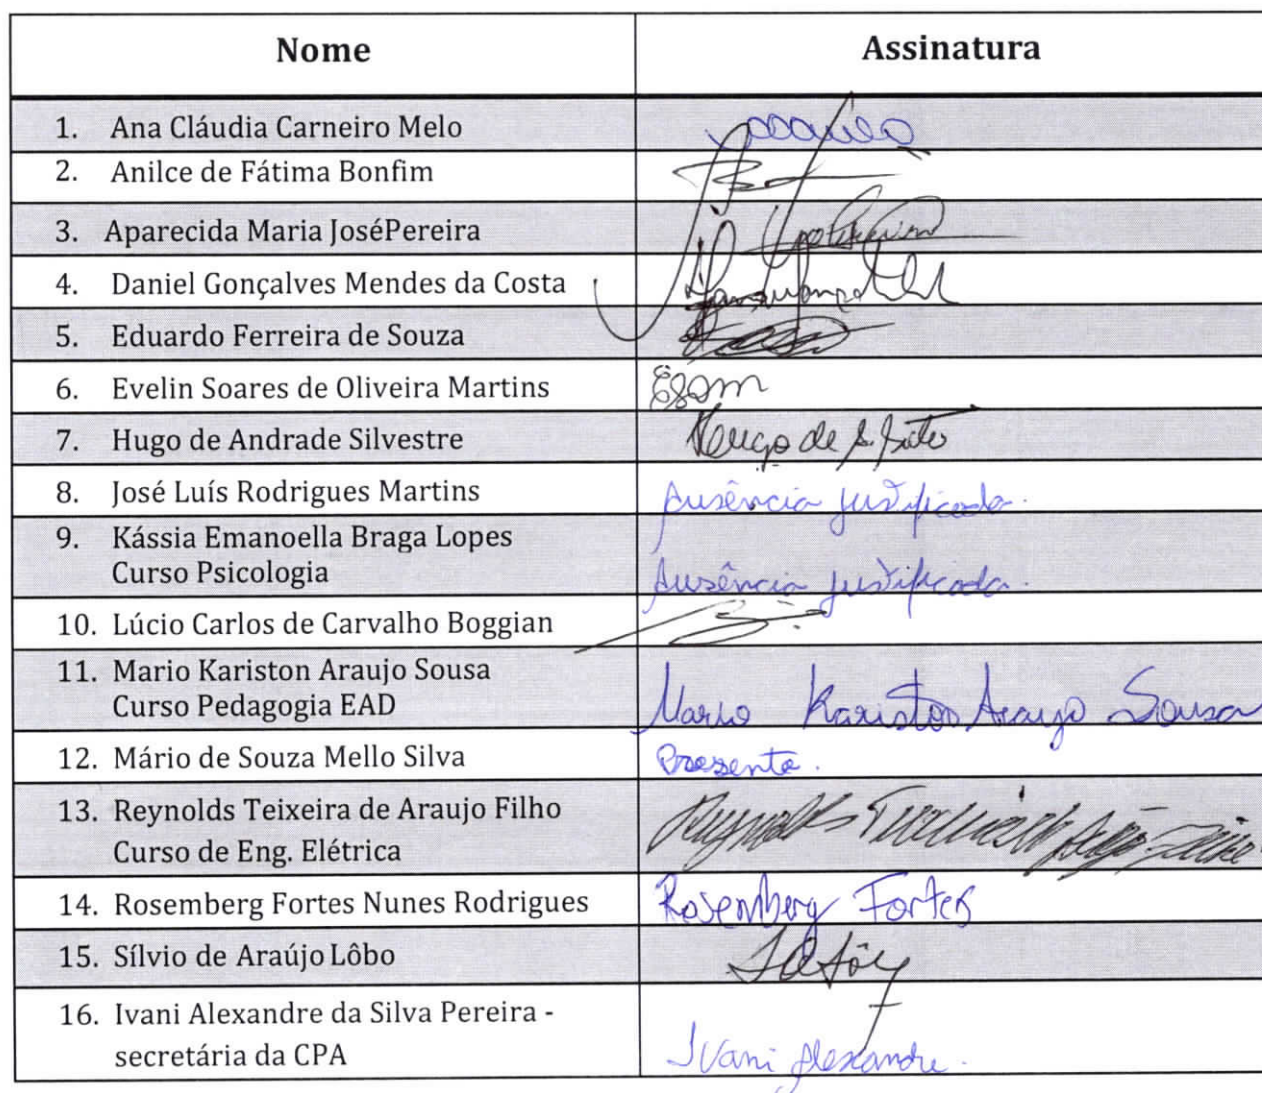 Nome Assinatura
1. Ana Cláudia Carneiro Melo
2. Anilce de Fátima Bonfim
3. Aparecida Maria JoséPereira
4. Daniel Gonçalves Mendes da Costa
5. Eduardo Ferreira de Souza
6. Evelin Soares de Oliveira Martins
7. Hugo de Andrade Silvestre Hugo de
8. José Luís Rodrigues Martins Ausência justificada.
9. Kássia Emanoella Braga Lopes
Curso Psicologia Ausência justificada.
10. Lúcio Carlos de Carvalho Boggian
11. Mario Kariston Araujo Sousa
Curso Pedagogia EAD Mario Kariston Araujo Sousa
12. Mário de Souza Mello Silva Presente.
13. Reynolds Teixeira de Araujo Filho Reynolds
Curso de Eng. Elétrica
14. Rosemberg Fortes Nunes Rodrigues Rosemberg Fortes
15. Sílvio de Araújo Lôbo
16. Ivani Alexandre da Silva Pereira -
secretária da CPA Ivani Alexandre.